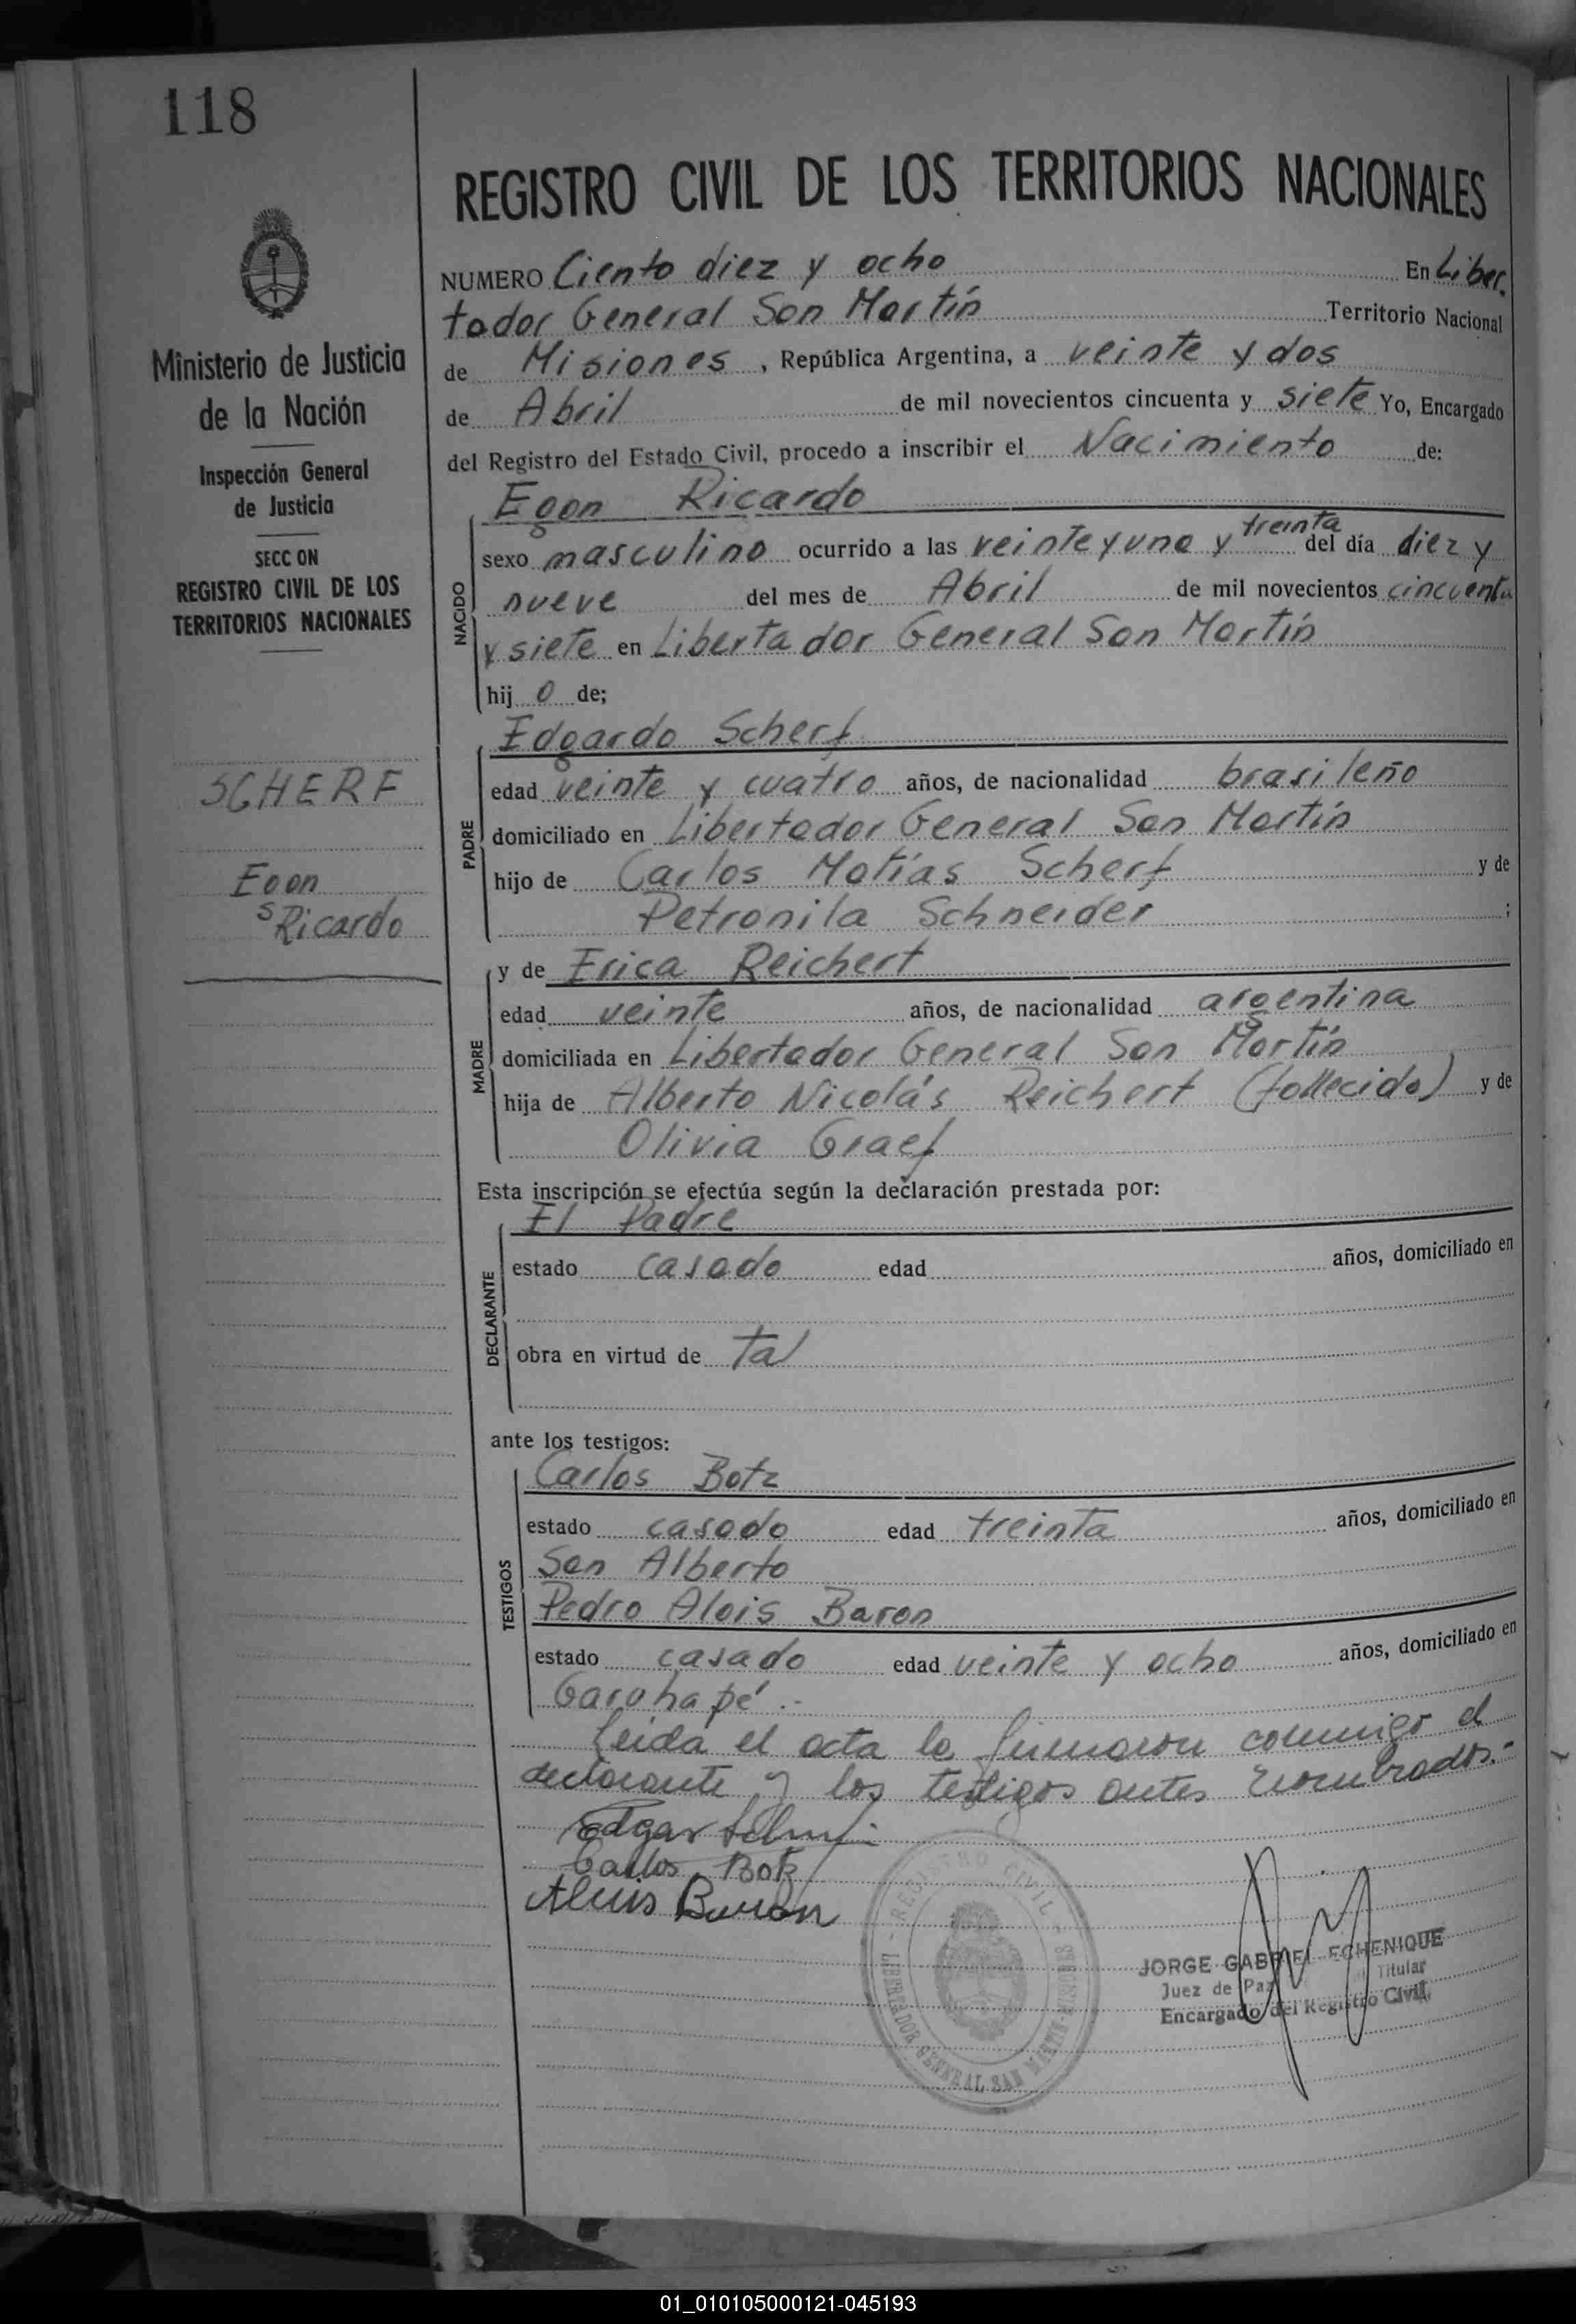 118
REGISTRO CIVIL DE LOS TERRITORIOS NACIONALES
Ministerio de Justicia
de la Nación
Inspección General
de Justicia
SECC ON
REGISTRO CIVIL DE LOS
TERRITORIOS NACIONALES
SCHERF
Egon
Ricardo
NUMERO Ciento diez y ocho En Liber.
tador General San Martín Territorio Nacional
de Misiones, República Argentina, a veinte y dos
de Abril de mil novecientos cincuenta y siete Yo, Encargado
del Registro del Estado Civil, procedo a inscribir el Nacimiento de:
Egon Ricardo
NACIDO
sexo masculino ocurrido a las veinte y una y treinta del día diez y
nueve del mes de Abril de mil novecientos cincuenta
y siete en Libertador General San Martín
hij o de;
Edgardo Scherf
PADRE
edad veinte y cuatro años, de nacionalidad brasileño
domiciliado en Libertador General San Martín
hijo de Carlos Matías Scherf y de
Petronila Schneider ;
MADRE
y de Erica Reichert
edad veinte años, de nacionalidad argentina
domiciliada en Libertador General San Martín
hija de Alberto Nicolás Reichert (fallecido) y de
Olivia Graef
Esta inscripción se efectúa según la declaración prestada por:
El Padre
DECLARANTE
estado casado edad años, domiciliado en
obra en virtud de tal
ante los testigos:
Carlos Botz
TESTIGOS
estado casado edad treinta años, domiciliado en
San Alberto
Pedro Alois Baron
estado casado edad veinte y ocho años, domiciliado en
Garuhapé.-
Leida el acta la firmaron conmigo el
declarante y los testigos antes nombrados.-
Edgar Scherf
Carlos Botz
Aluis Baron
REGISTRO CIVIL
LIBERTADOR GENERAL SAN MARTIN
JORGE GABRIEL ECHENIQUE
Juez de Paz Titular
Encargado del Registro Civil
01_010105000121-045193